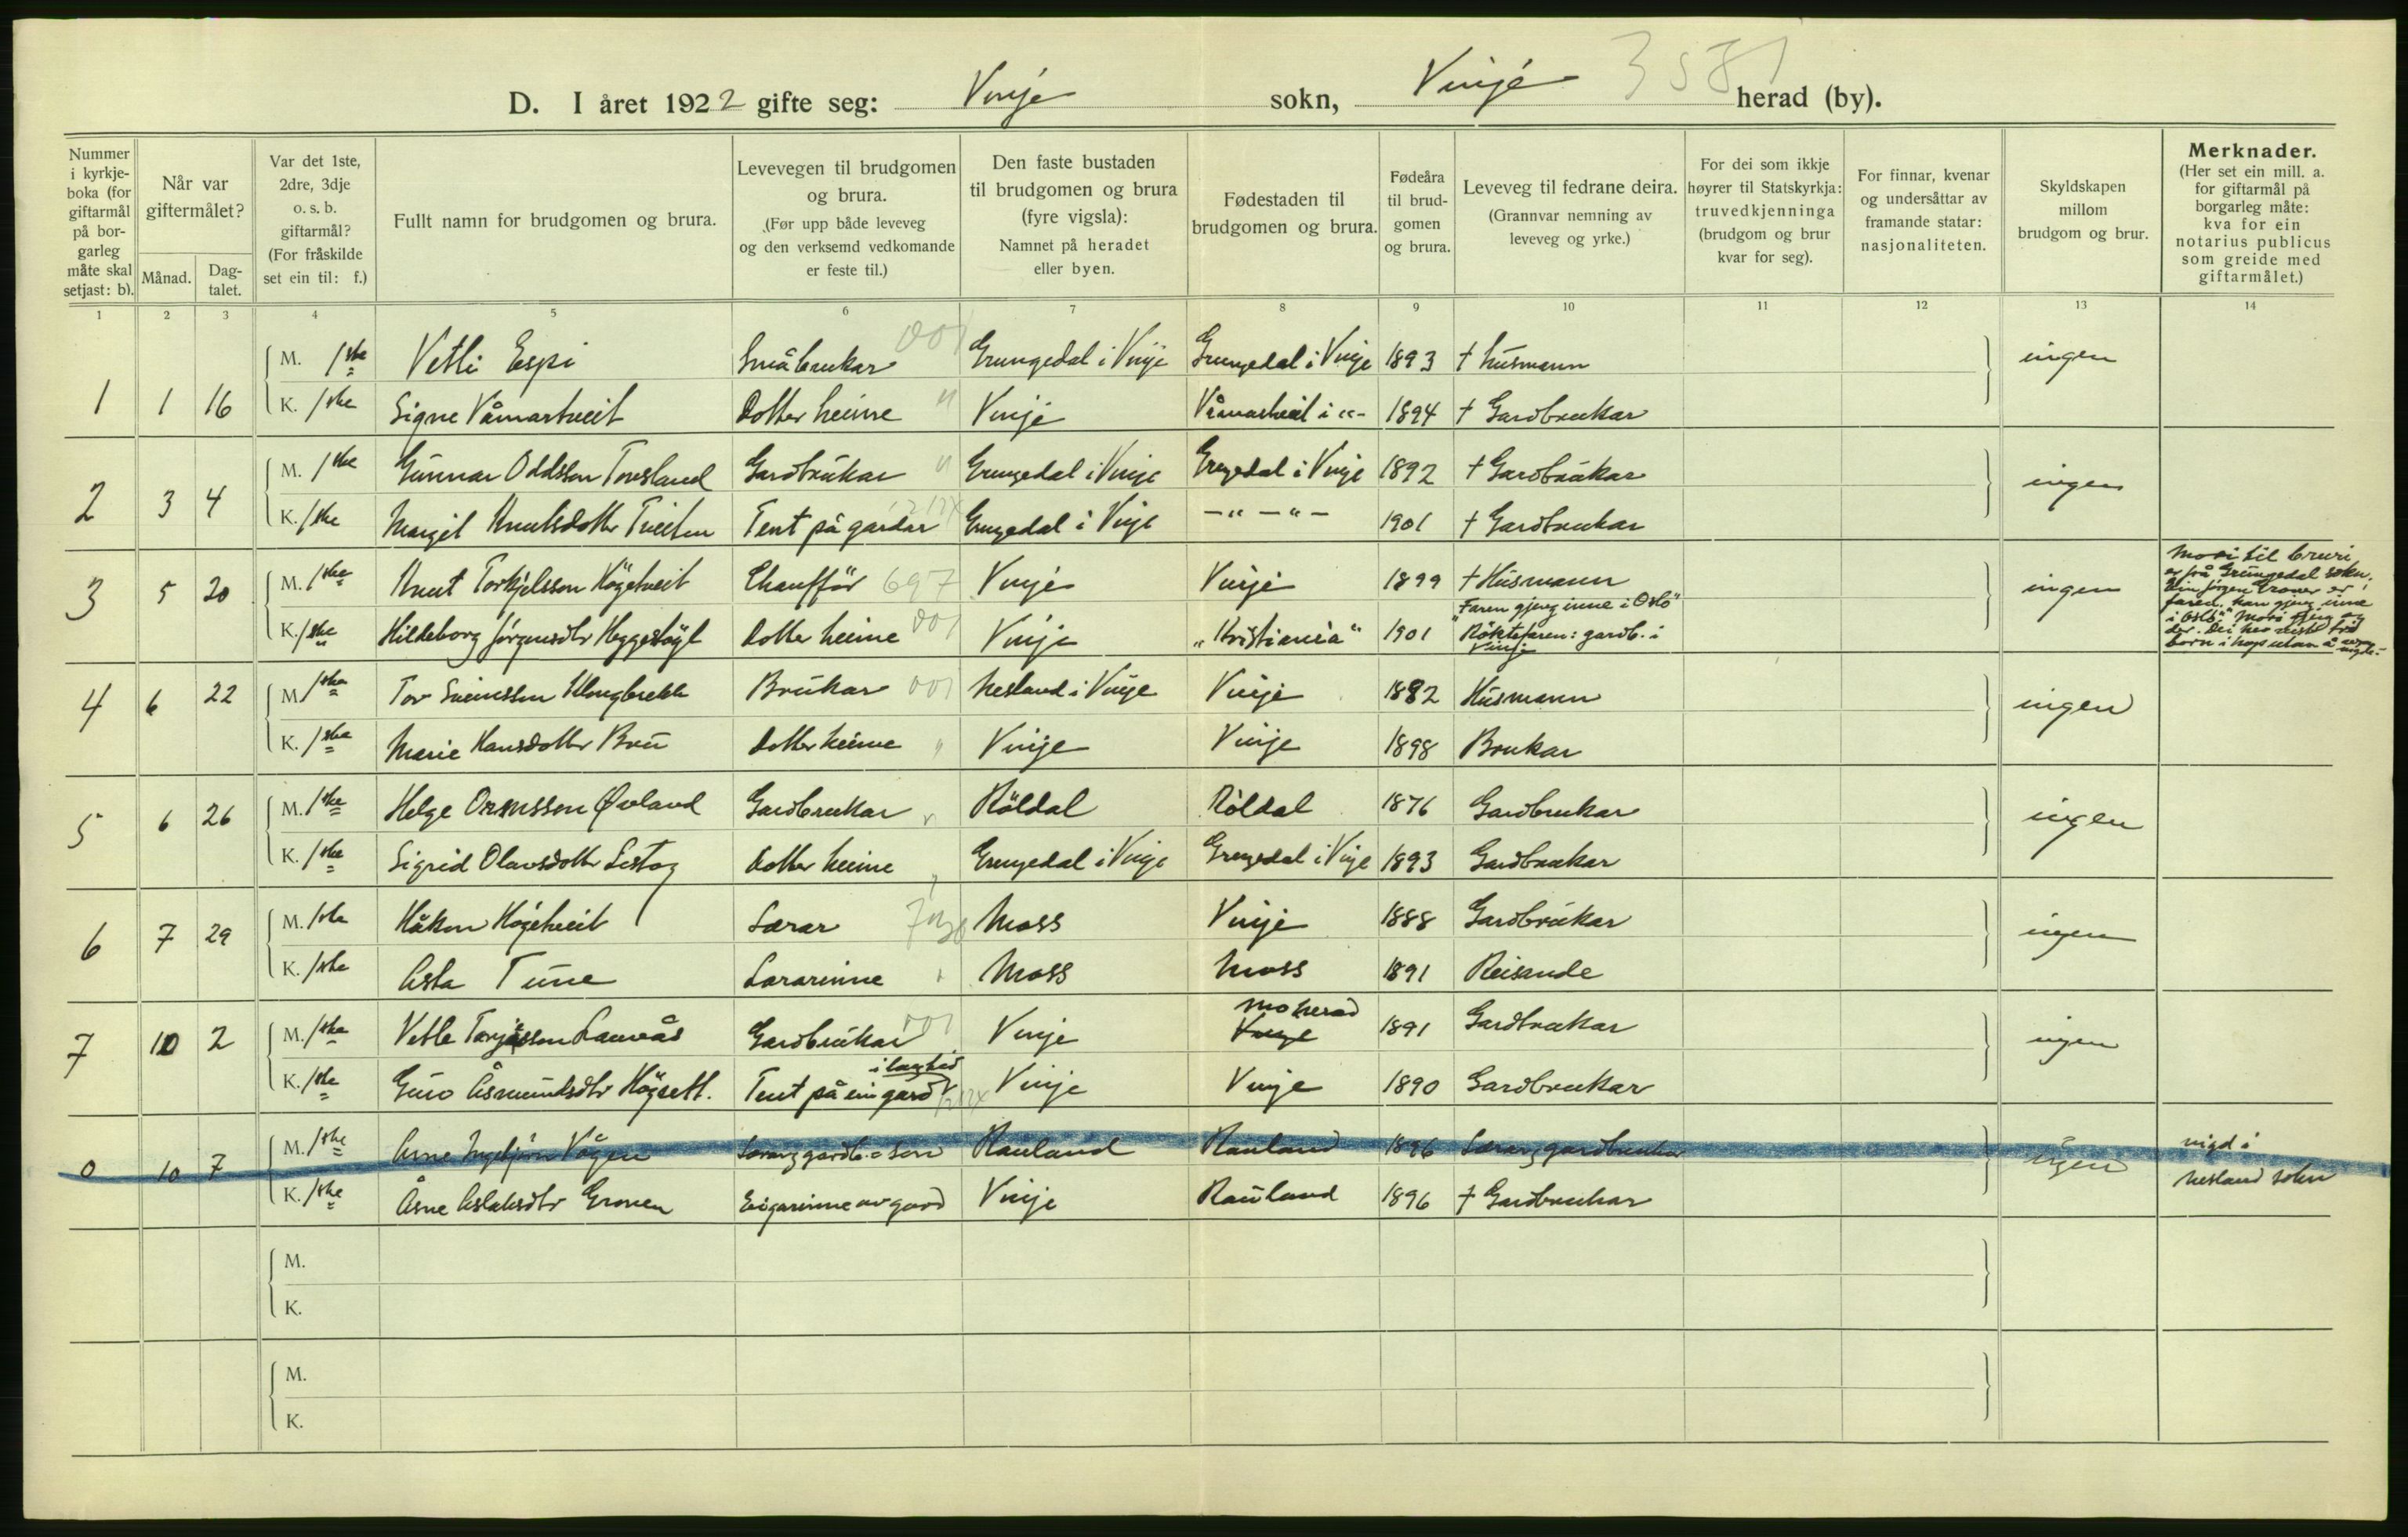 D. I året 1922 gifte seg: Vinje sokn, Vinje herad (by). 3581
Nummer i kyrkjeboka (for giftarmål på borgarleg måte skal setjast: b).
Når var giftermålet?
Månad.
Dagtalet.
Var det 1ste, 2dre, 3dje o. s. b. giftarmål? (For fråskilde set ein til: f.)
Fullt namn for brudgomen og brura.
Levevegen til brudgomen og brura. (Før upp både leveveg og den verksemd vedkomande er feste til.)
Den faste bustaden til brudgomen og brura (fyre vigsla): Namnet på heradet eller byen.
Fødestaden til brudgomen og brura.
Fødeåra til brudgomen og brura.
Leveveg til fedrane deira. (Grannvar nemning av leveveg og yrke.)
For dei som ikkje høyrer til Statskyrkja: truvedkjenninga (brudgom og brur kvar for seg).
For finnar, kvenar og undersåttar av framande statar: nasjonaliteten.
Skyldskapen millom brudgom og brur.
Merknader. (Her set ein mill. a. for giftarmål på borgarleg måte: kva for ein notarius publicus som greide med giftarmålet.)
1 2 3 4 5 6 7 8 9 10 11 12 13 14
M. 1ste Vetli Espi Småbrukar 001 Grungedal i Vinje Grungedal i Vinje 1893 † Husmann ingen
1 1 16 K. 1ste Signe Våmartveit Dotter heime " Vinje Våmartveit i "- 1894 † Gardbrukar
M. 1ste Gunnar Oddsson Torsland Gardbrukar " Grungedal i Vinje Grungedal i Vinje 1892 † Gardbrukar
2 3 4 K. 1ste Margit Knutsdotter Tveiten Tent på gardar Grungedal i Vinje -"-"- 1901 † Gardbrukar ingen
3 5 20 M. 1ste Knut Torkjelsson Högetveit Chaufför 697 Vinje Vinje 1899 † Husmann ingen
K. 1ste Hildeborg Jörgensdtr Heggestöyl Dotter heime 001 Vinje "Kristiania" 1901 "Faren gjeng inne i Oslo" Röktefaren: gardb. i Vinje
Mori til bruri er frå Grungedal sokn. Ein Jörgen Groner er faren. han gjeng inne i Oslo." Mori gjeng og der. Dei hev
born i hop utan å vera vigde.-
4 6 22 M. 1ste Tov Sveinsson Klongbrekk Brukar 001 Nesland i Vinje Vinje 1882 Husmann ingen
K. 1ste Marie Hansdotter Bru Dotter heime " Vinje Vinje 1898 Brukar
5 6 26 M. 1ste Helge Ormsson Øvland Gardbrukar " Röldal Röldal 1876 Gardbrukar ingen
K. 1ste Sigrid Olavsdotter Listog Dotter heime " Grungedal i Vinje Grungedal i Vinje 1893 Gardbrukar
6 7 29 M. 1ste Håkon Högetveit Lærar Moss Vinje 1888 Gardbrukar ingen
K. 1ste Asta Tune Lærarinne " Moss Moss 1891 Reisande
Mo herad
7 10 2 M. 1ste Vetle Torjusson Lauvås Gardbrukar 001 Vinje Vinje 1891 Gardbrukar ingen
K. 1ste Guro Åsmundsdtr Högsett. Tent på ein gard i Vinje Vinje 1890 Gardbrukar
0 10 7 M. 1ste Arne Ingebjörn Vågen Lærar, gardb. = son Rauland Rauland 1896 Lærar, gardbrukar ingen vigd i
K. 1ste Åsne Aslaksdtr Groven Eigarinne av gard Vinje Rauland 1896 † Gardbrukar Nesland sokn
M.
K.
M.
K.